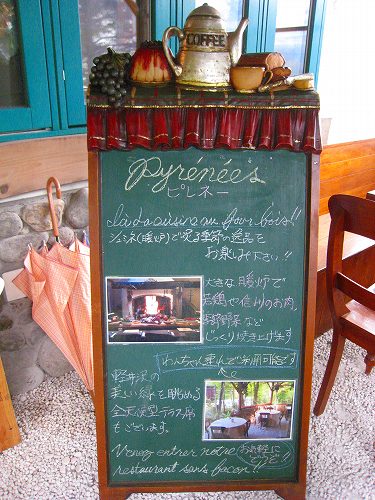 COFFEE
Pyrénées
ピレネー
シュミネ(暖炉)で灯る季節の逸品を
お楽しみ下さい!!
大きな暖炉で
若鶏や信州のお肉、
季節野菜など
じっくり焼き上げます
わんちゃん連れでご利用可能です
軽井沢の
美しい緑を眺める
全天候型テラス席
もございます。
Venez entrer notre お気軽に
restaurant sans façon!! どうぞ!!